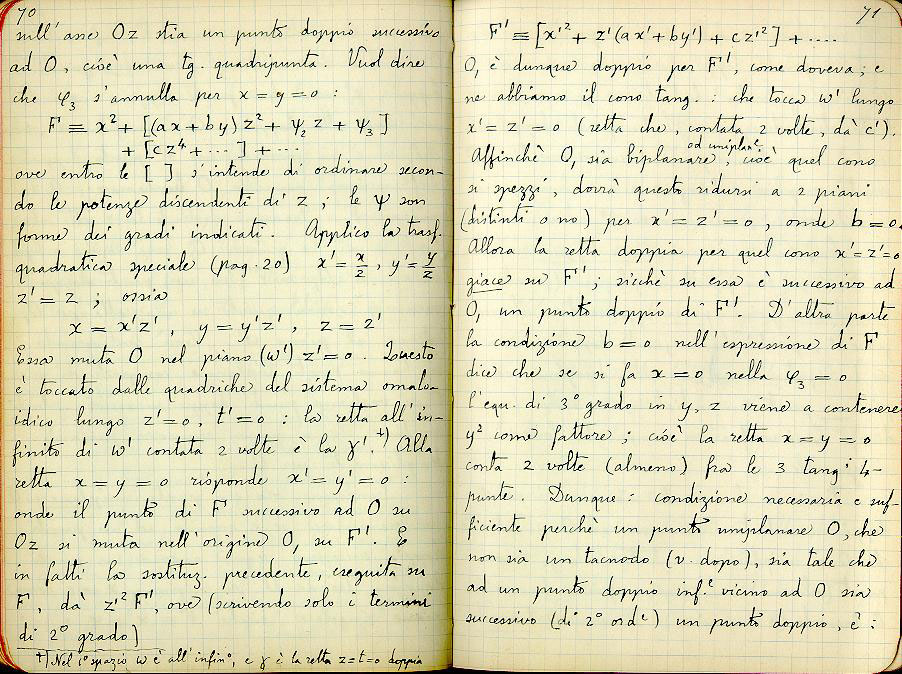 70
sull'asse Oz stia un punto doppio successivo
ad O, cioè una tg. quadripunta. Vuol dire
che φ₃ s'annulla per x = y = 0 :
F ≡ x² + [(ax + by) z² + ψ₂ z + ψ₃]
+ [cz⁴ + ...] + ....
ove entro le [ ] s'intende di ordinare secon-
do le potenze discendenti di z ; le ψ son
forme dei gradi indicati. Applico la trasf.
quadratica speciale (pag. 20) x' = x/z , y' = y/z
z' = z ; ossia
x = x'z' , y = y'z' , z = z'
Essa muta O nel piano (ω') z' = 0 . Questo
è toccato dalle quadriche del sistema omalo-
idico lungo z' = 0, t' = 0 : la retta all'in-
finito di ω' contata 2 volte è la γ'. +) Alla
retta x = y = 0 risponde x' = y' = 0 :
onde il punto di F successivo ad O su
Oz si muta nell'origine O, su F'. E
in fatti la sostituz. precedente, eseguita su
F, dà z'² F', ove (scrivendo solo i termini
di 2° grado)
+) Nel 1° spazio ω è all'infin°, e γ è la retta z = t = 0 doppia
71
F' ≡ [x'² + z'(ax' + by') + cz'²] + ....
O, è dunque doppio per F', come doveva ; e
ne abbiamo il cono tang. : che tocca ω' lungo
x' = z' = 0 (retta che, contata 2 volte, dà c').
Affinchè O, sia biplanare, od uniplanᵉ, cioè quel cono
si spezzi, dovrà questo ridursi a 2 piani
(distinti o no) per x' = z' = 0 , onde b = 0.
Allora la retta doppia per quel cono x' = z' = 0
giace su F' ; sicchè su essa è successivo ad
O, un punto doppio di F'. D'altra parte
la condizione b = 0 nell'espressione di F
dice che se si fa x = 0 nella φ₃ = 0
l'equ. di 3° grado in y, z viene a contenere
y² come fattore ; cioè la retta x = y = 0
conta 2 volte (almeno) fra le 3 tangⁱ 4-
punte. Dunque : condizione necessaria e suf-
ficiente perchè un punto uniplanare O, che
non sia un tacnodo (v. dopo), sia tale che
ad un punto doppio infᵉ vicino ad O sia
successivo (di 2° ordᵉ) un punto doppio, è :